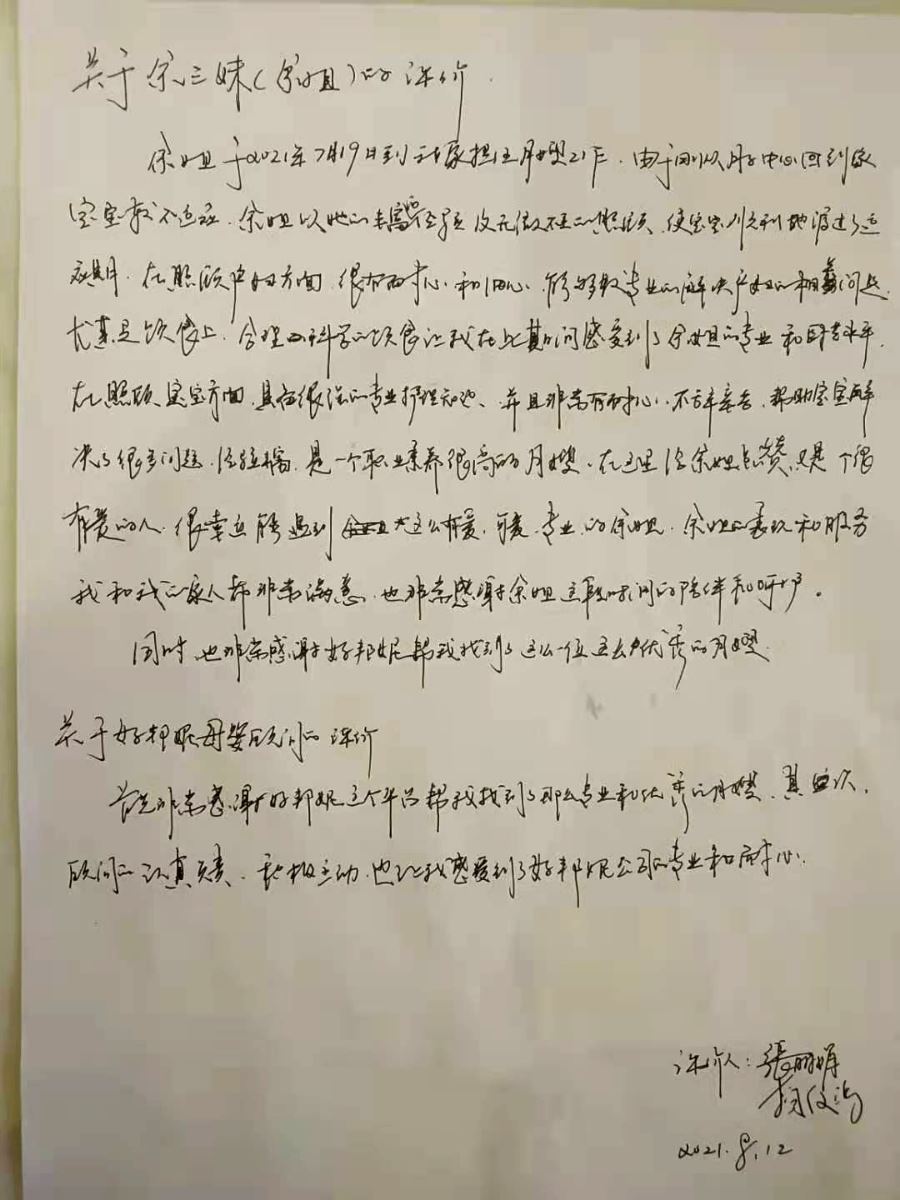 关于余三妹(余姐)的评价.
余姐于2021年7月19日到我家担任月嫂工作.由于刚从月子中心回到家
宝宝较不适应.余姐以她的丰富经验及无微不至的照顾、使宝宝顺利地渡过了适
应期.在照顾产妇方面.很有耐心和细心.能够较专业的解决产妇的相关问题
尤其是饮食上.合理而科学的饮食让我在此期间感受到了余姐的专业和水平.
在照顾宝宝方面.具有很强的专业护理知识、并且非常有耐心.不辞辛苦.帮助宝宝解
决了很多问题.是一个职业素养很高的月嫂.在这里给余姐点赞.又是个很
有爱的人.很幸运能遇到这么有爱.可爱.专业.的余姐.余姐的表现和服务
我和我的家人都非常满意.也非常感谢余姐这段时间的陪伴和呵护。
同时也非常感谢好邦妮帮我找到了这么一位这么优秀的月嫂.
关于好邦妮母婴顾问的评价
首先非常感谢好邦妮这个平台帮我找到了那么专业和优秀的月嫂.其次.
顾问的认真负责、积极主动.也让我感受到了好邦妮公司的专业和耐心.
评价人:張
2021.8.12